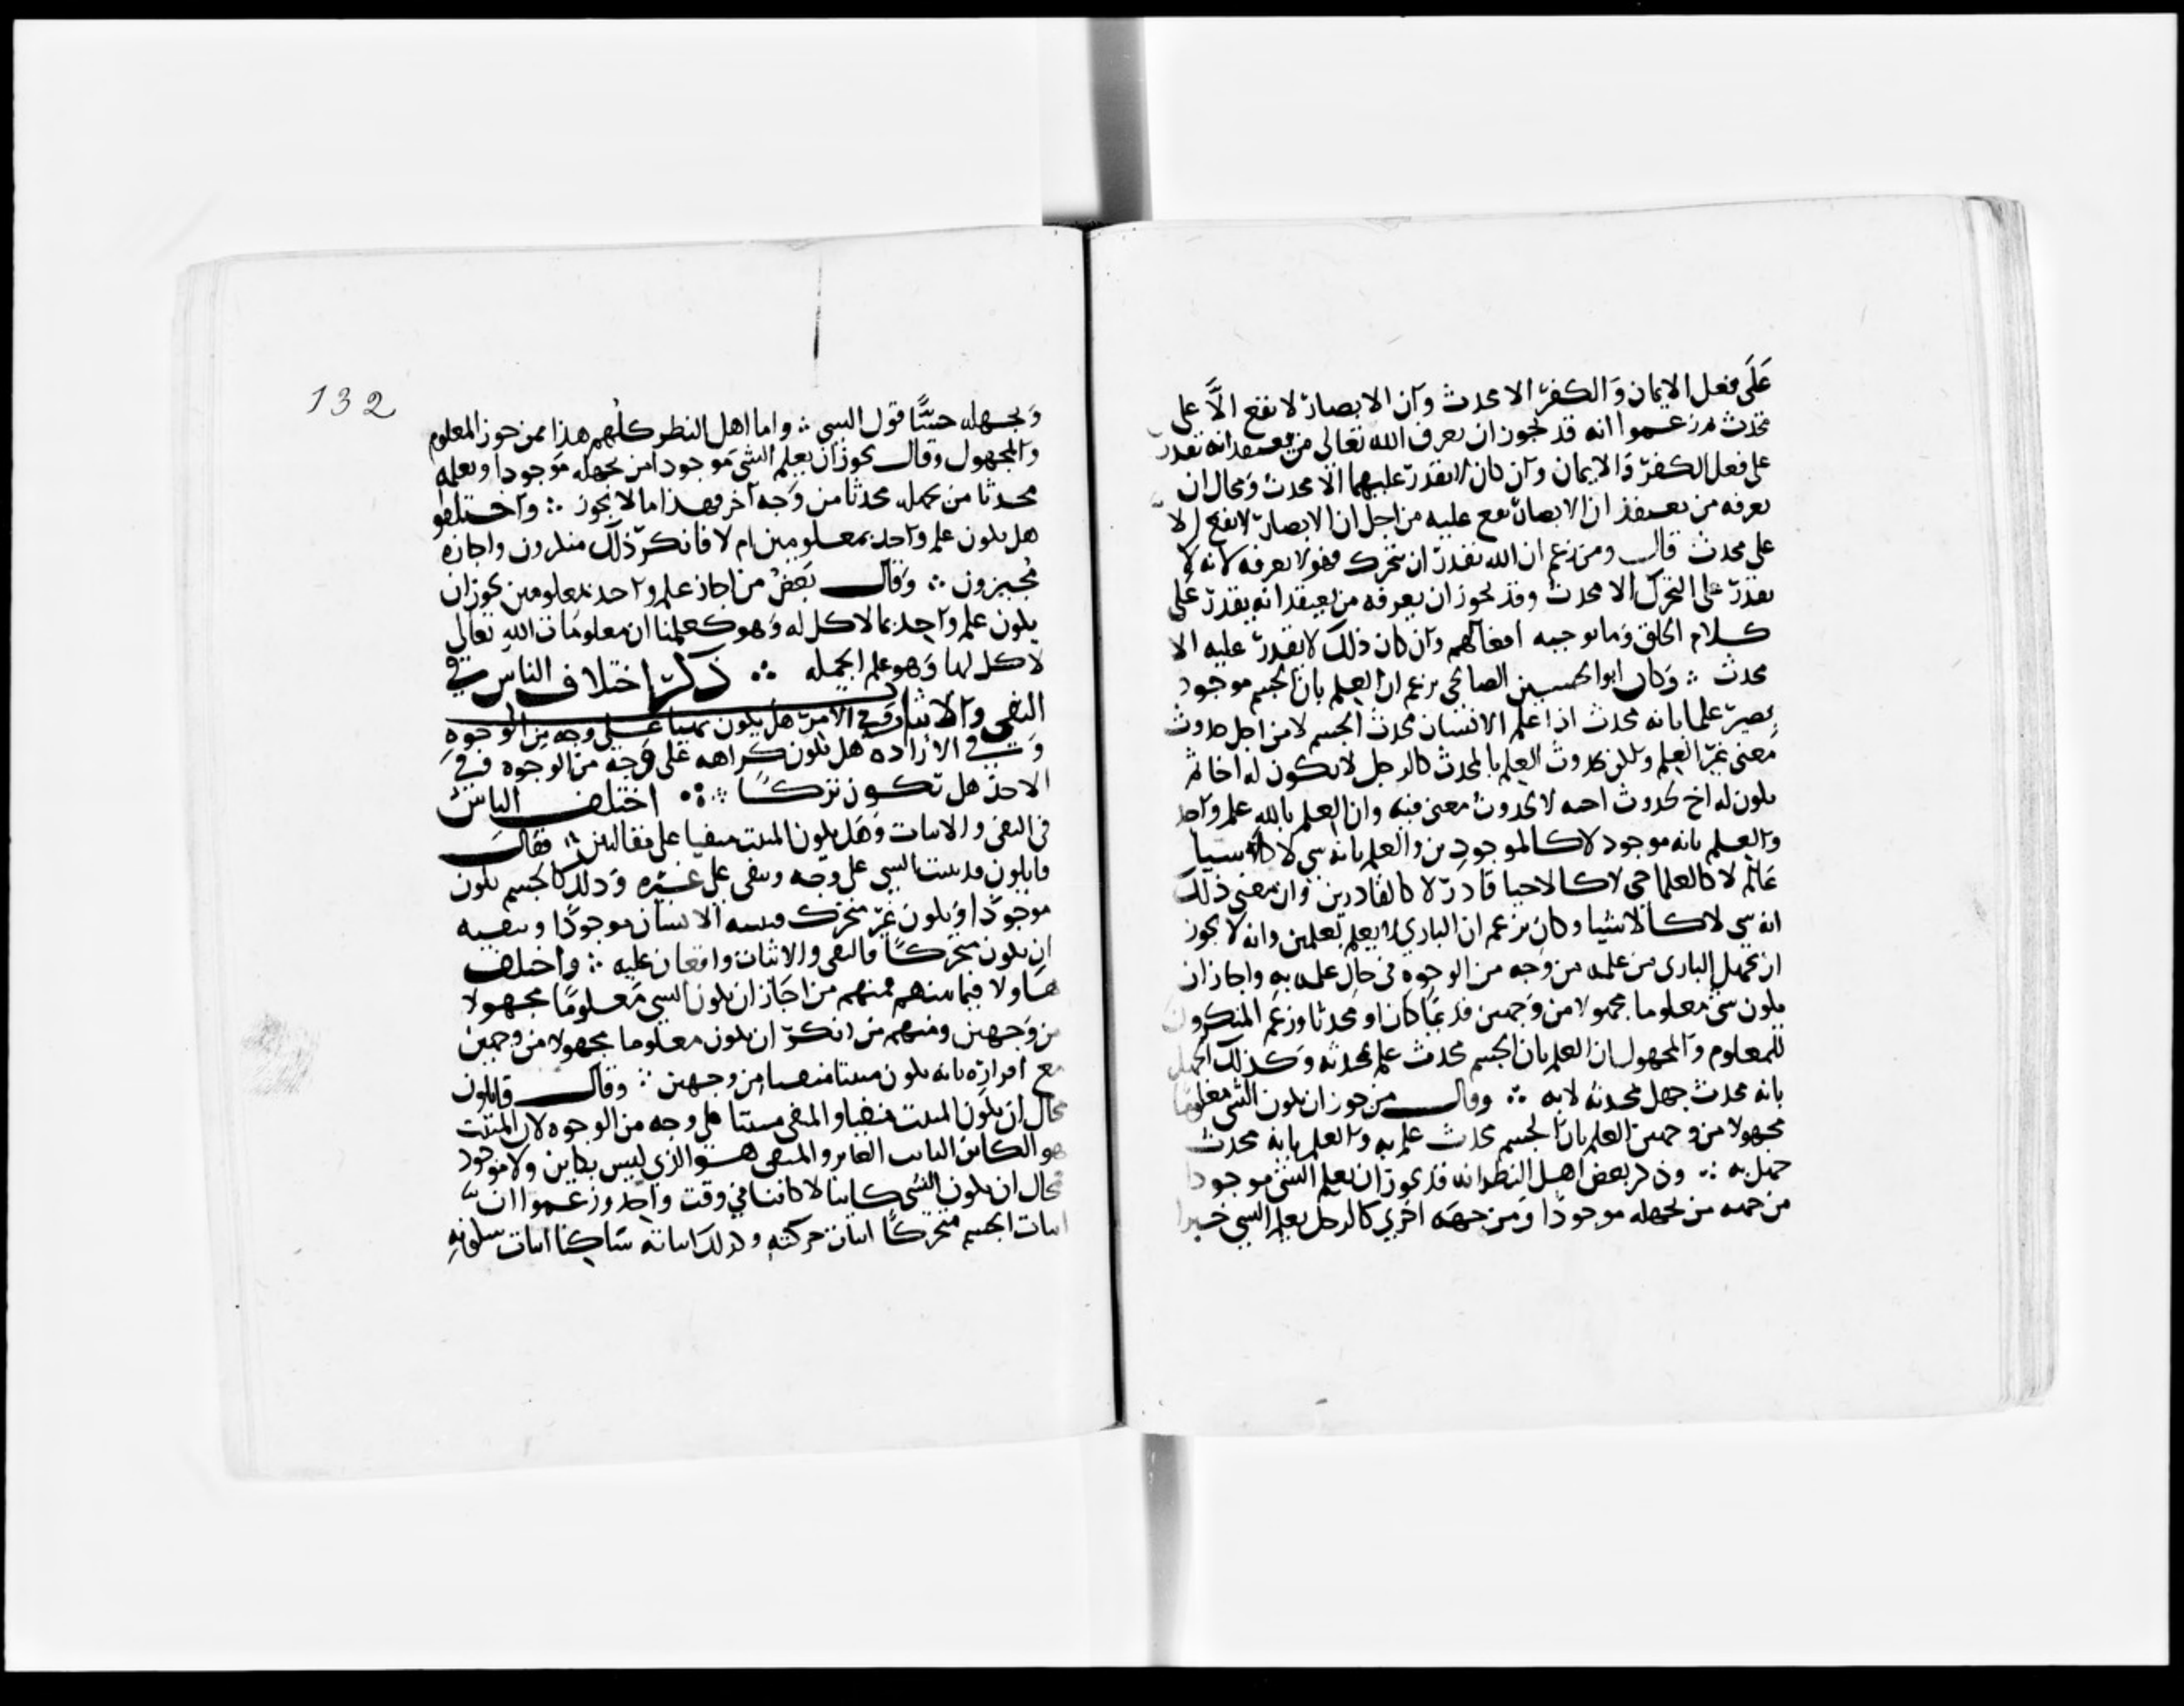 على فعل الايمان والكفر الا محدث وان الابصار لا تقع الا على
محدث زعموا انه قد يجوز ان يعرف الله تعالى من يعتقد انه يقدر
على فعل الكفر والايمان وان كان لا يقدر عليهما الا محدث ومحال ان
يعرفه من يعتقد ان الابصار تقع عليه من اجل ان الابصار لا تقع الا
على محدث قال ومن زعم ان الله يقدر ان يتحرك فهو لا يعرفه لانه لا
يقدر على التحرك الا محدث وقد يجوز ان يعرفه من يعتقد انه يقدر على
كلام الخلق وما توجبه افعالهم وان كان ذلك لا يقدر عليه الا
محدث ∴ وكان ابو الحسين الصالحي يزعم ان العلم بان الجسم موجود
يصير علما بانه محدث اذا علم الانسان محدث الجسم لا من اجل حدوث
معنى غير العلم ولكن لحدوث العلم بالمحدث كالرجل لا يكون له اخا ثم
يكون له اخ لحدوث اخيه لا لحدوث معنى فيه وان العلم بالله علم واحد
والعلم بانه موجود لا كالموجودين والعلم بانه شي لا كالاشيا
عالم لا كالعلما حي لا كالاحيا قادر لا كالقادرين وان معنى ذلك
انه شي لا كالاشيا وكان يزعم ان الباري لا يعلم بعلمين وانه لا يجوز
ان يجهل الباري من علمه من وجه من الوجوه في حال علمه به واجاز ان
يكون شي معلوما مجهولا من وجهين قديما كان او محدثا وزعم المنكرون
للمعلوم والمجهول ان العلم بان الجسم محدث علم بمحدثه وكذلك الجهل
بانه محدث جهل بمحدثه لا به ∴ وقال من جوز ان يكون الشي معلوما
مجهولا من وجهين العلم بان الجسم محدث علم به والعلم بانه محدث
جهل به ∴ وذكر بعض اهل النظر انه قد يجوز ان يعلم الشي موجودا
من جهة من يجهله موجودا ومن جهة اخرى كالرجل يعلم الشي خبرا
132
ويجهله حسًّا قول النبي ∴ واما اهل النظر كلهم هذا ممن جوز المعلوم
والمجهول وقال يجوز ان يعلم الشي موجودا من يجهله موجودا ويعلمه
محدثا من يجهله محدثا من وجه آخر فهذا ما لا يجوز ∴ واختلفوا
هل يكون علم واحد بمعلومين ام لا فانكر ذلك منكرون واجازه
مجيزون ∴ وقال بعض من اجاز علم واحد بمعلومين يجوز ان
يكون علم واحد بما لا كل له وهو كعلمنا ان معلومات الله تعالى
لا كل لها وهو علم الجمله ∴ ذكر اختلاف الناس في
النفي والاثبات وفي الامر هل يكون نهيا على وجه من الوجوه
وفي الارادة هل تكون كراهه على وجه من الوجوه وفي
الاخذ هل تكون تركا ∴ اختلف الناس
في النفي والاثبات وهل يكون المثبت منفيا على مقالتين ∴ فقال
قايلون قد يثبت الشي على وجه وينفى على غيره وذلك كالجسم يكون
موجودا ويكون غير متحرك فيثبته الانسان موجودا وينفيه
ان يكون متحركا فالنفي والاثبات واقعان عليه ∴ واختلف
هاولا فيما بينهم فمنهم من اجاز ان يكون الشي معلوما مجهولا
من وجهين ومنهم من انكر ان يكون معلوما مجهولا من وجهين
مع اقراره بانه يكون مثبتا منفيا من وجهين ∴ وقال قايلون
محال ان يكون المثبت منفيا والمنفي مثبتا على وجه من الوجوه لان المثبت
هو الكاين الثابت الغابر والمنفي هو الذي ليس بكاين ولا موجود
فمحال ان يكون الشي كاينا لا كاينا في وقت واحد وزعموا ان
اثبات الجسم متحركا اثبات حركته وكذلك اثباته ساكنا اثبات سكونه